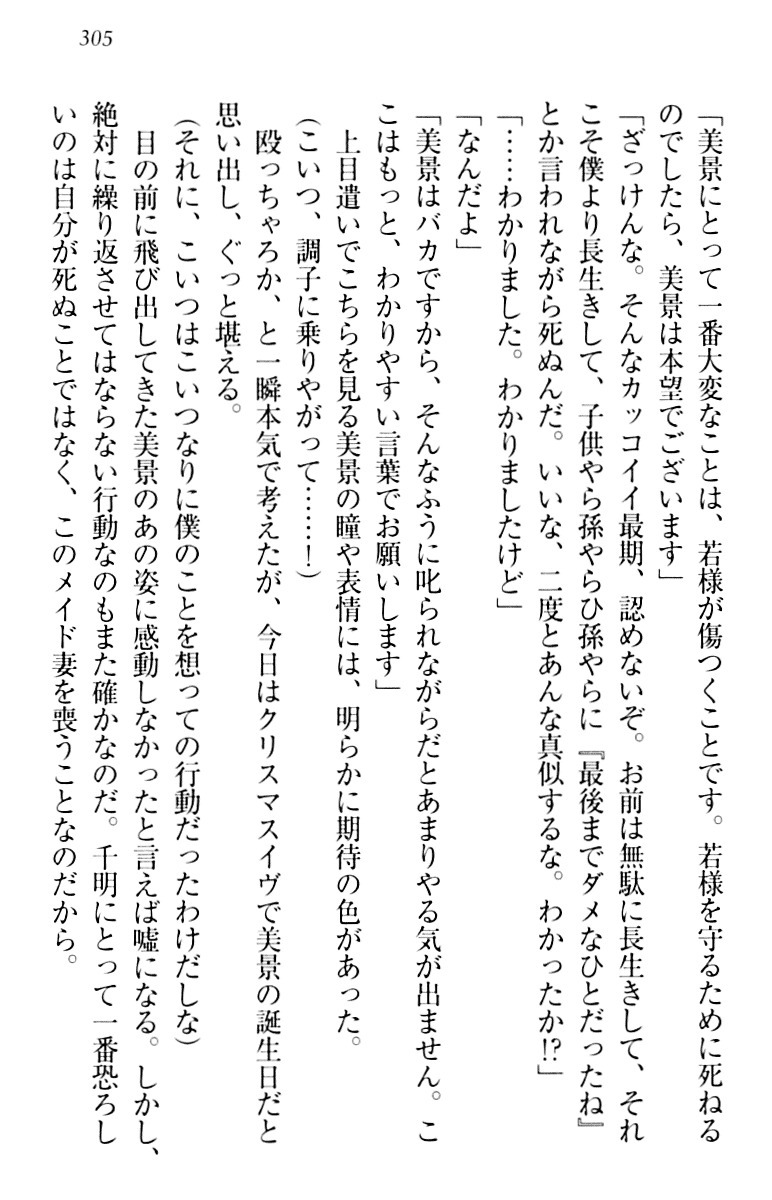 305
「美景にとって一番大変なことは、若様が傷つくことです。若様を守るために死ねる
のでしたら、美景は本望でございます」
「ざっけんな。そんなカッコイイ最期、認めないぞ。お前は無駄に長生きして、それ
こそ僕より長生きして、子供やら孫やらひ孫やらに『最後までダメなひとだったね』
とか言われながら死ぬんだ。いいな、二度とあんな真似するな。わかったか!?」
「……わかりました。わかりましたけど」
「なんだよ」
「美景はバカですから、そんなふうに叱られながらだとあまりやる気が出ません。こ
こはもっと、わかりやすい言葉でお願いします」
上目遣いでこちらを見る美景の瞳や表情には、明らかに期待の色があった。
(こいつ、調子に乗りやがって……！)
殴っちゃろか、と一瞬本気で考えたが、今日はクリスマスイヴで美景の誕生日だと
思い出し、ぐっと堪える。
(それに、こいつはこいつなりに僕のことを想っての行動だったわけだしな)
目の前に飛び出してきた美景のあの姿に感動しなかったと言えば嘘になる。しかし、
絶対に繰り返させてはならない行動なのもまた確かなのだ。千明にとって一番恐ろし
いのは自分が死ぬことではなく、このメイド妻を喪うことなのだから。